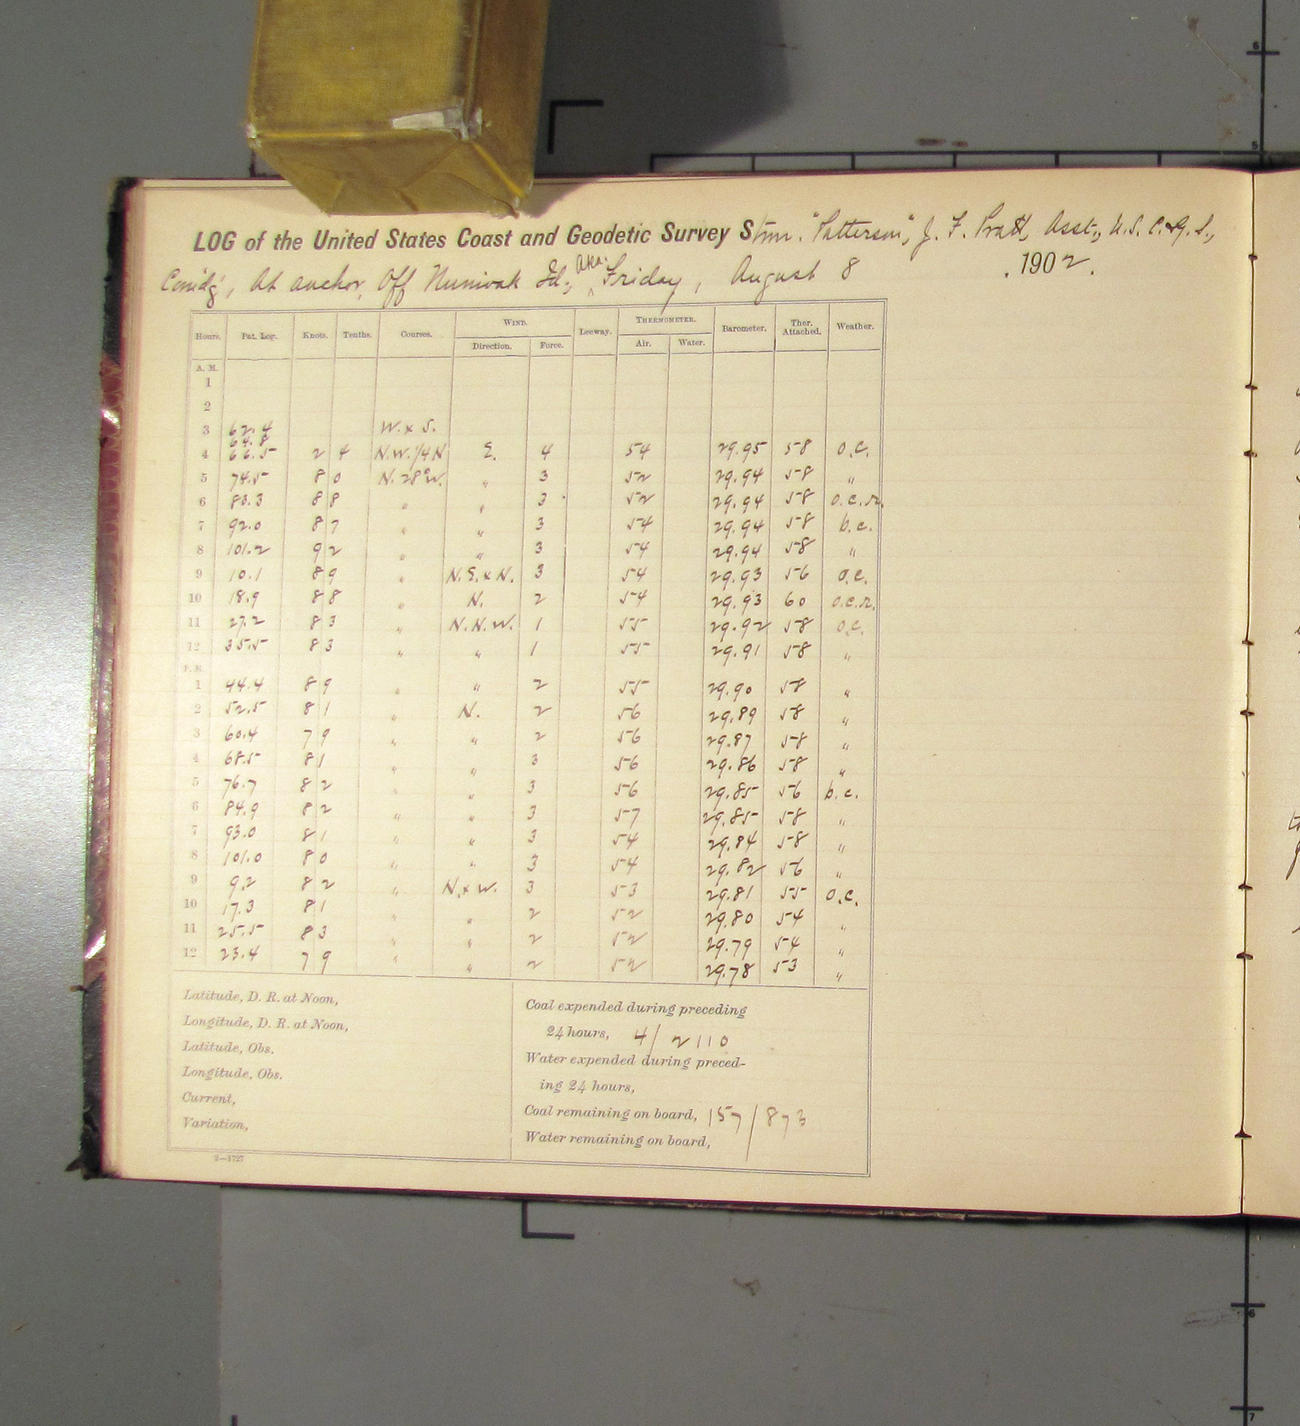 LOG of the United States Coast and Geodetic Survey Stmr. "Patterson", J. F. Pratt, Asst., U.S.C.&G.S.,
Com'd'g, At anchor, Off Nunivak Id., Aka. Friday, August 8, 1902.
Hours. Pat. Log. Knots. Tenths. Courses. WIND. Leeway. THERMOMETER. Barometer. Ther. Attached. Weather.
Direction. Force. Air. Water.
A. M.
1
2
3 62.4 W. x S.
64.8
4 66.5 2 4 N.W. 1/4 N E. 4 54 29.95 58 o.c.
5 74.5 8 0 N. 28° W. " 3 52 29.94 58 "
6 83.3 8 8 " " 3 52 29.94 58 o.c.r.
7 92.0 8 7 " " 3 54 29.94 58 b.c.
8 101.2 9 2 " " 3 54 29.94 58 "
9 10.1 8 9 " N.E. x N. 3 54 29.93 56 o.c.
10 18.9 8 8 " N. 2 54 29.93 60 o.c.r.
11 27.2 8 3 " N.N.W. 1 55 29.92 58 o.c.
12 35.5 8 3 " " 1 55 29.91 58 "
P. M.
1 44.4 8 9 " " 2 55 29.90 58 "
2 52.5 8 1 " N. 2 56 29.89 58 "
3 60.4 7 9 " " 2 56 29.87 58 "
4 68.5 8 1 " " 3 56 29.86 58 "
5 76.7 8 2 " " 3 56 29.85 56 b.c.
6 84.9 8 2 " " 3 57 29.85 58 "
7 93.0 8 1 " " 3 54 29.84 58 "
8 101.0 8 0 " " 3 54 29.82 56 "
9 9.2 8 2 " N. x W. 3 53 29.81 55 o.c.
10 17.3 8 1 " " 2 52 29.80 54 "
11 25.5 8 3 " " 2 52 29.79 54 "
12 23.4 7 9 " " 2 52 29.78 53 "
Latitude, D. R. at Noon,
Longitude, D. R. at Noon,
Latitude, Obs.
Longitude, Obs.
Current,
Variation,
Coal expended during preceding
24 hours, 4/2110
Water expended during preced-
ing 24 hours,
Coal remaining on board, 157/873
Water remaining on board,
2—1727